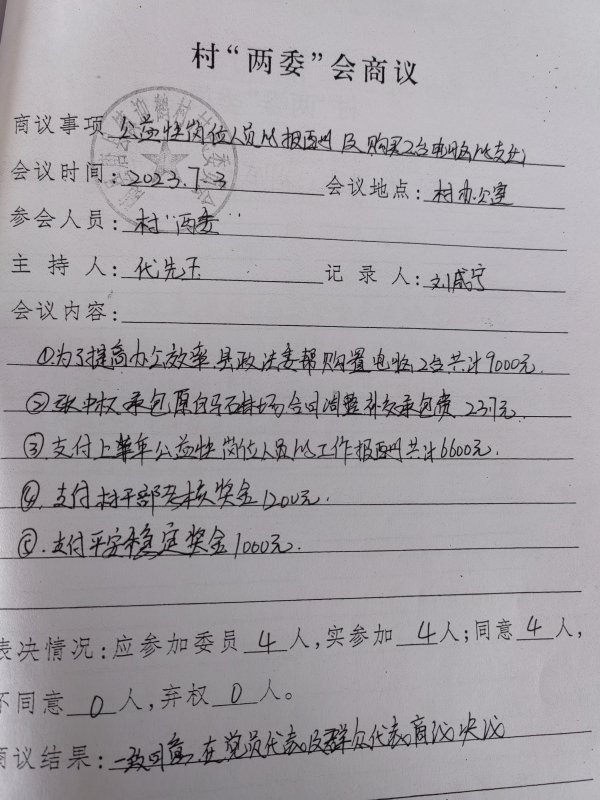 村“两委”会商议
商议事项 公益性岗位人员的报酬及购买2台电脑的支出
会议时间：2023.7.3 会议地点：村办公室
参会人员：村“两委”
主持人：代先玉 记录人：刘咸宁
会议内容：
①为了提高办公效率县政法委帮购置电脑2台共计9000元.
②张中权承包原白马石材场合同调整补交承包费237元.
③支付上半年公益性岗位人员的工作报酬共计6600元.
④.支付村干部考核奖金1200元.
⑤.支付平安稳定奖金1000元.
表决情况：应参加委员4人，实参加4人；同意4人，
不同意0人，弃权0人。
商议结果：一致同意,在党员代表及群众代表商议决议